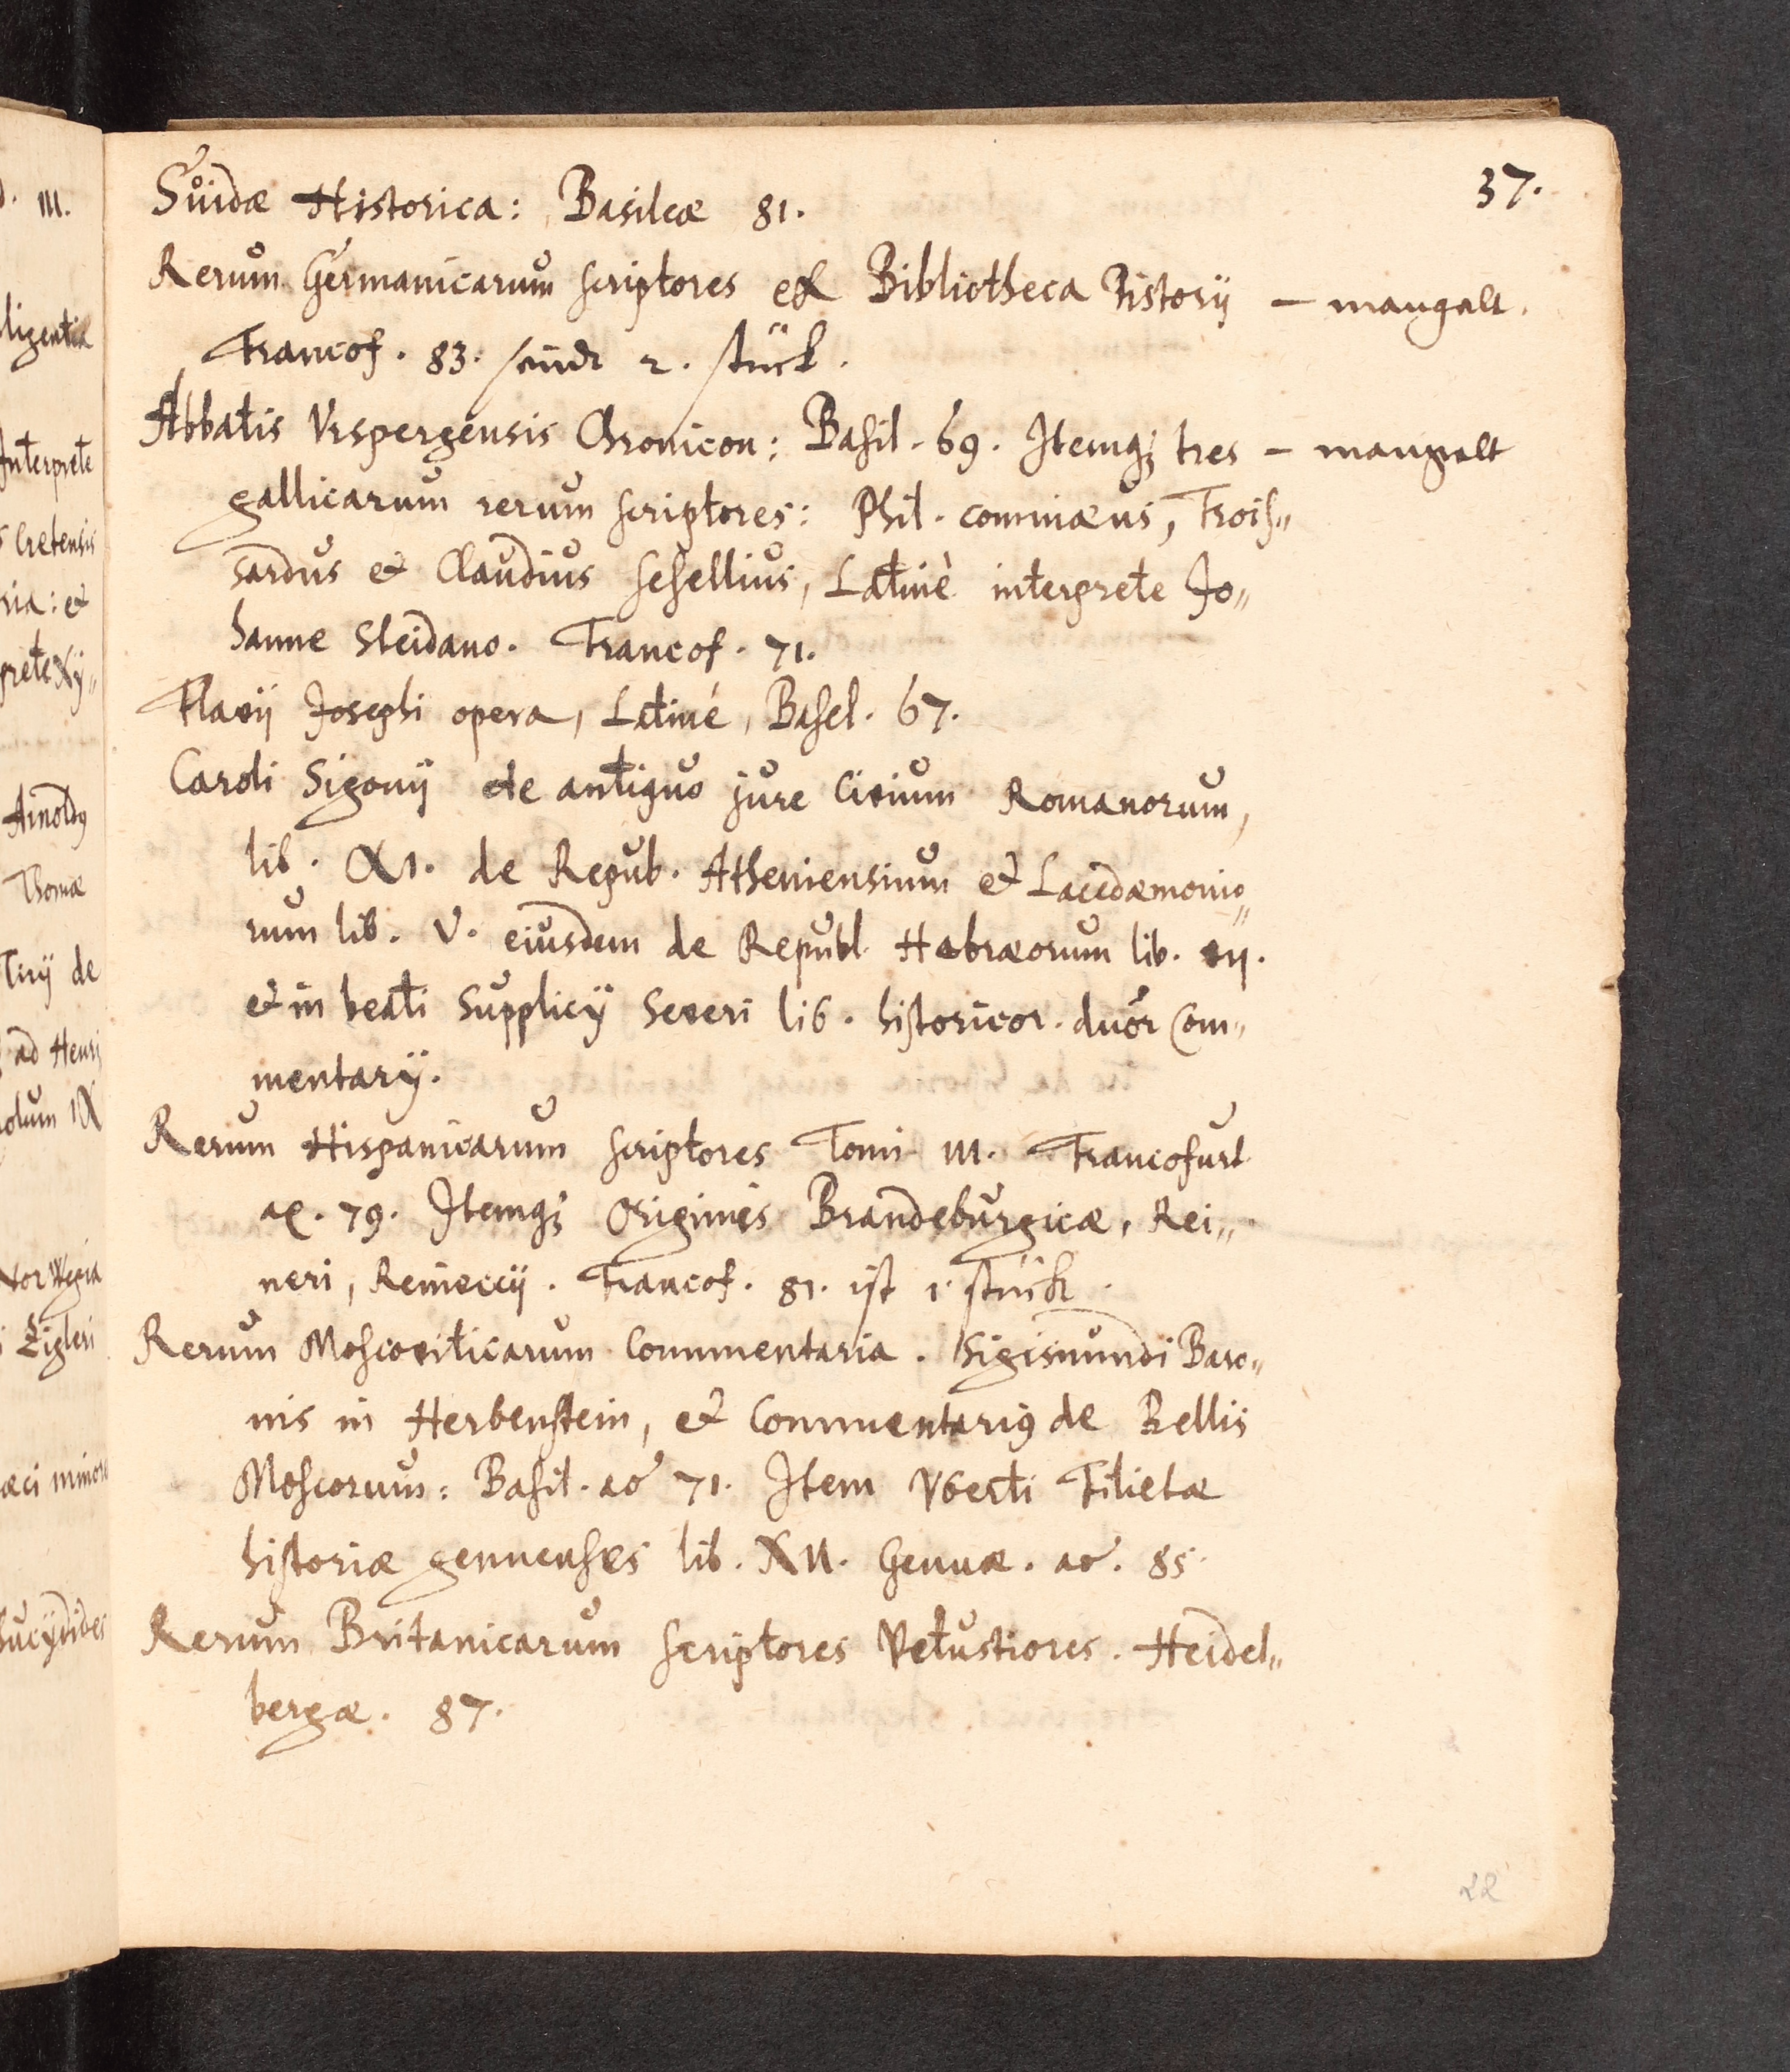 37.
Suidæ Historica: Basileæ 81.
Rerum Germanicarum scriptores ex Bibliotheca Pistorij — mangelt.
Francof. 83. seindt 2. stück.
Abbatis Vrspergensis Chronicon: Basil. 69. Itemq3 tres — mangelt
gallicarum rerum scriptores: Phil. cominæus, Frois„
sardus et Claudius sesellius, Latinè interprete Jo„
hanne Sleidano. Francof. 71.
Flavij Josephi opera, Latiné, Basel. 67.
Caroli Sigonij de antiquo jure Civium Romanorum,
lib. XI. de Repub. Atheniensium et Lacedæmonio„
rum lib. V. eiusdem de Republ. Hebræorum lib. vij.
et in beati Supplicij Severi lib. historicor. duor Com„
mentarij.
Rerum Hispanicarum scriptores Tomi III. Francofurt
79. Itemq3 Origines Brandeburgicæ, Rei„
neri, Reineccij. Francof. 81. ist 1. stück.
Rerum Moscoviticarum Commentaria. Sigismundi Baro„
nis in Herbenstein, et Commentariꝰ de Bellis
Moscorum: Basil. aō 71. Item Vberti Folietæ
historiæ genuenses lib. XII. Genuæ. aō. 85.
Rerum Britanicarum scriptores Vetustiores. Heidel„
bergæ. 87.
22
III.
Interprete
Cretensis
ria: et
prete Xÿ„
Arnoldꝰ
Thomæ
Tirij de
ad Henri
olum IX
Norwegia
Zigleri
æci minor